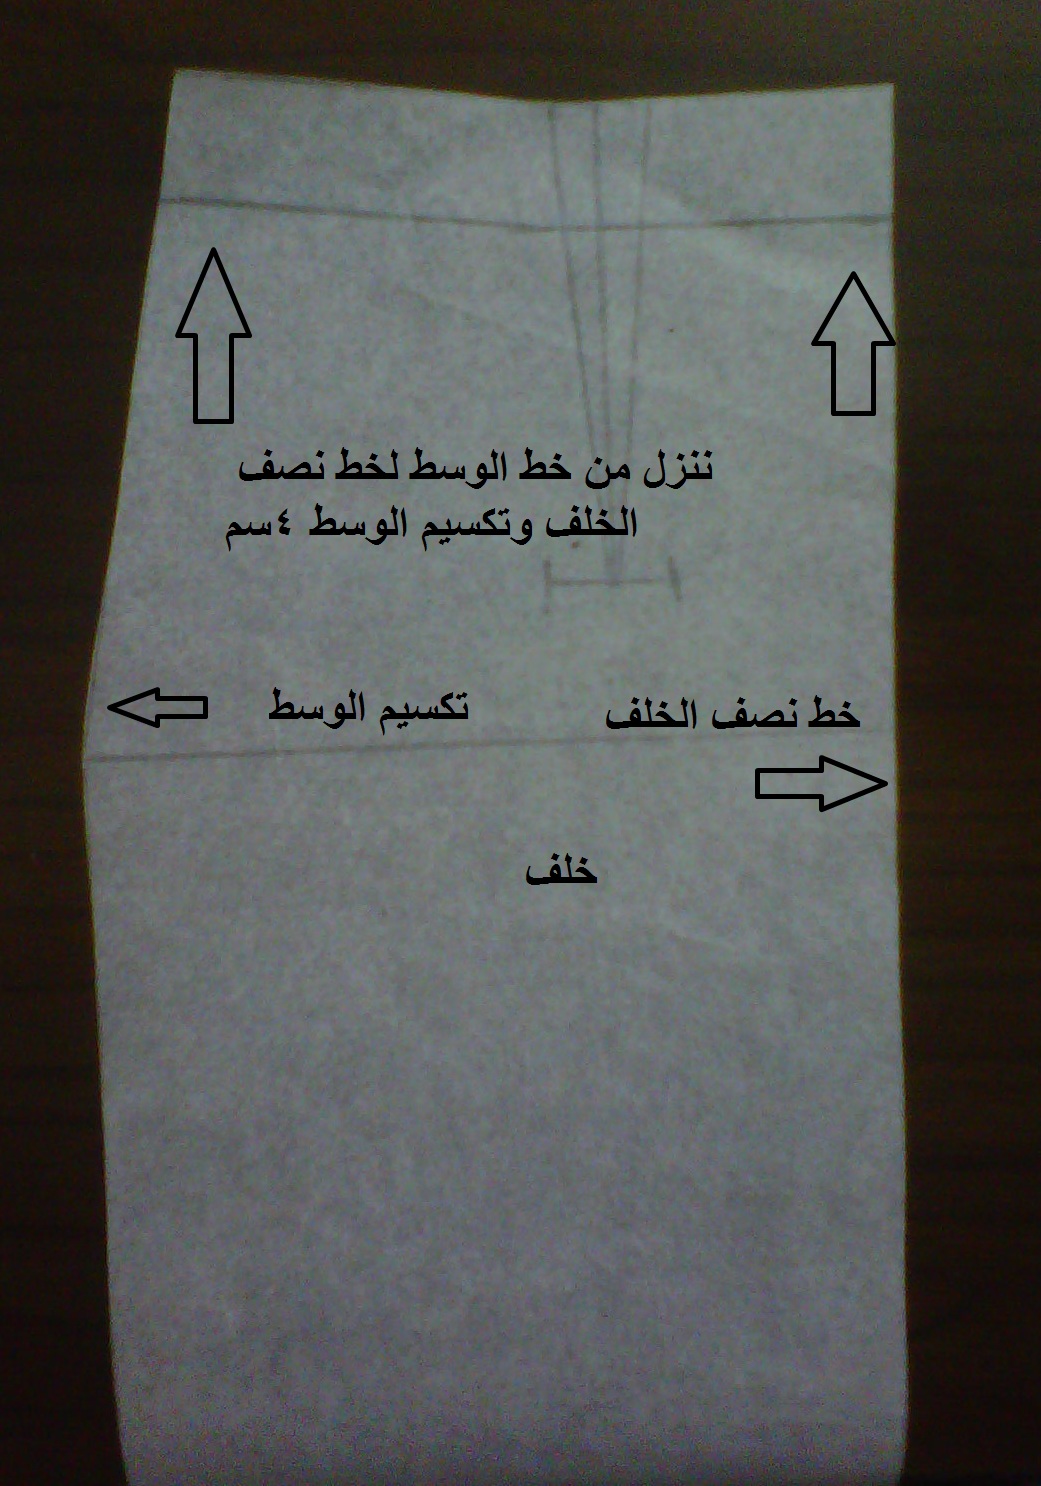 ننزل من خط الوسط لخط نصف
الخلف وتكسيم الوسط ٤سم
خط نصف الخلف
تكسيم الوسط
خلف